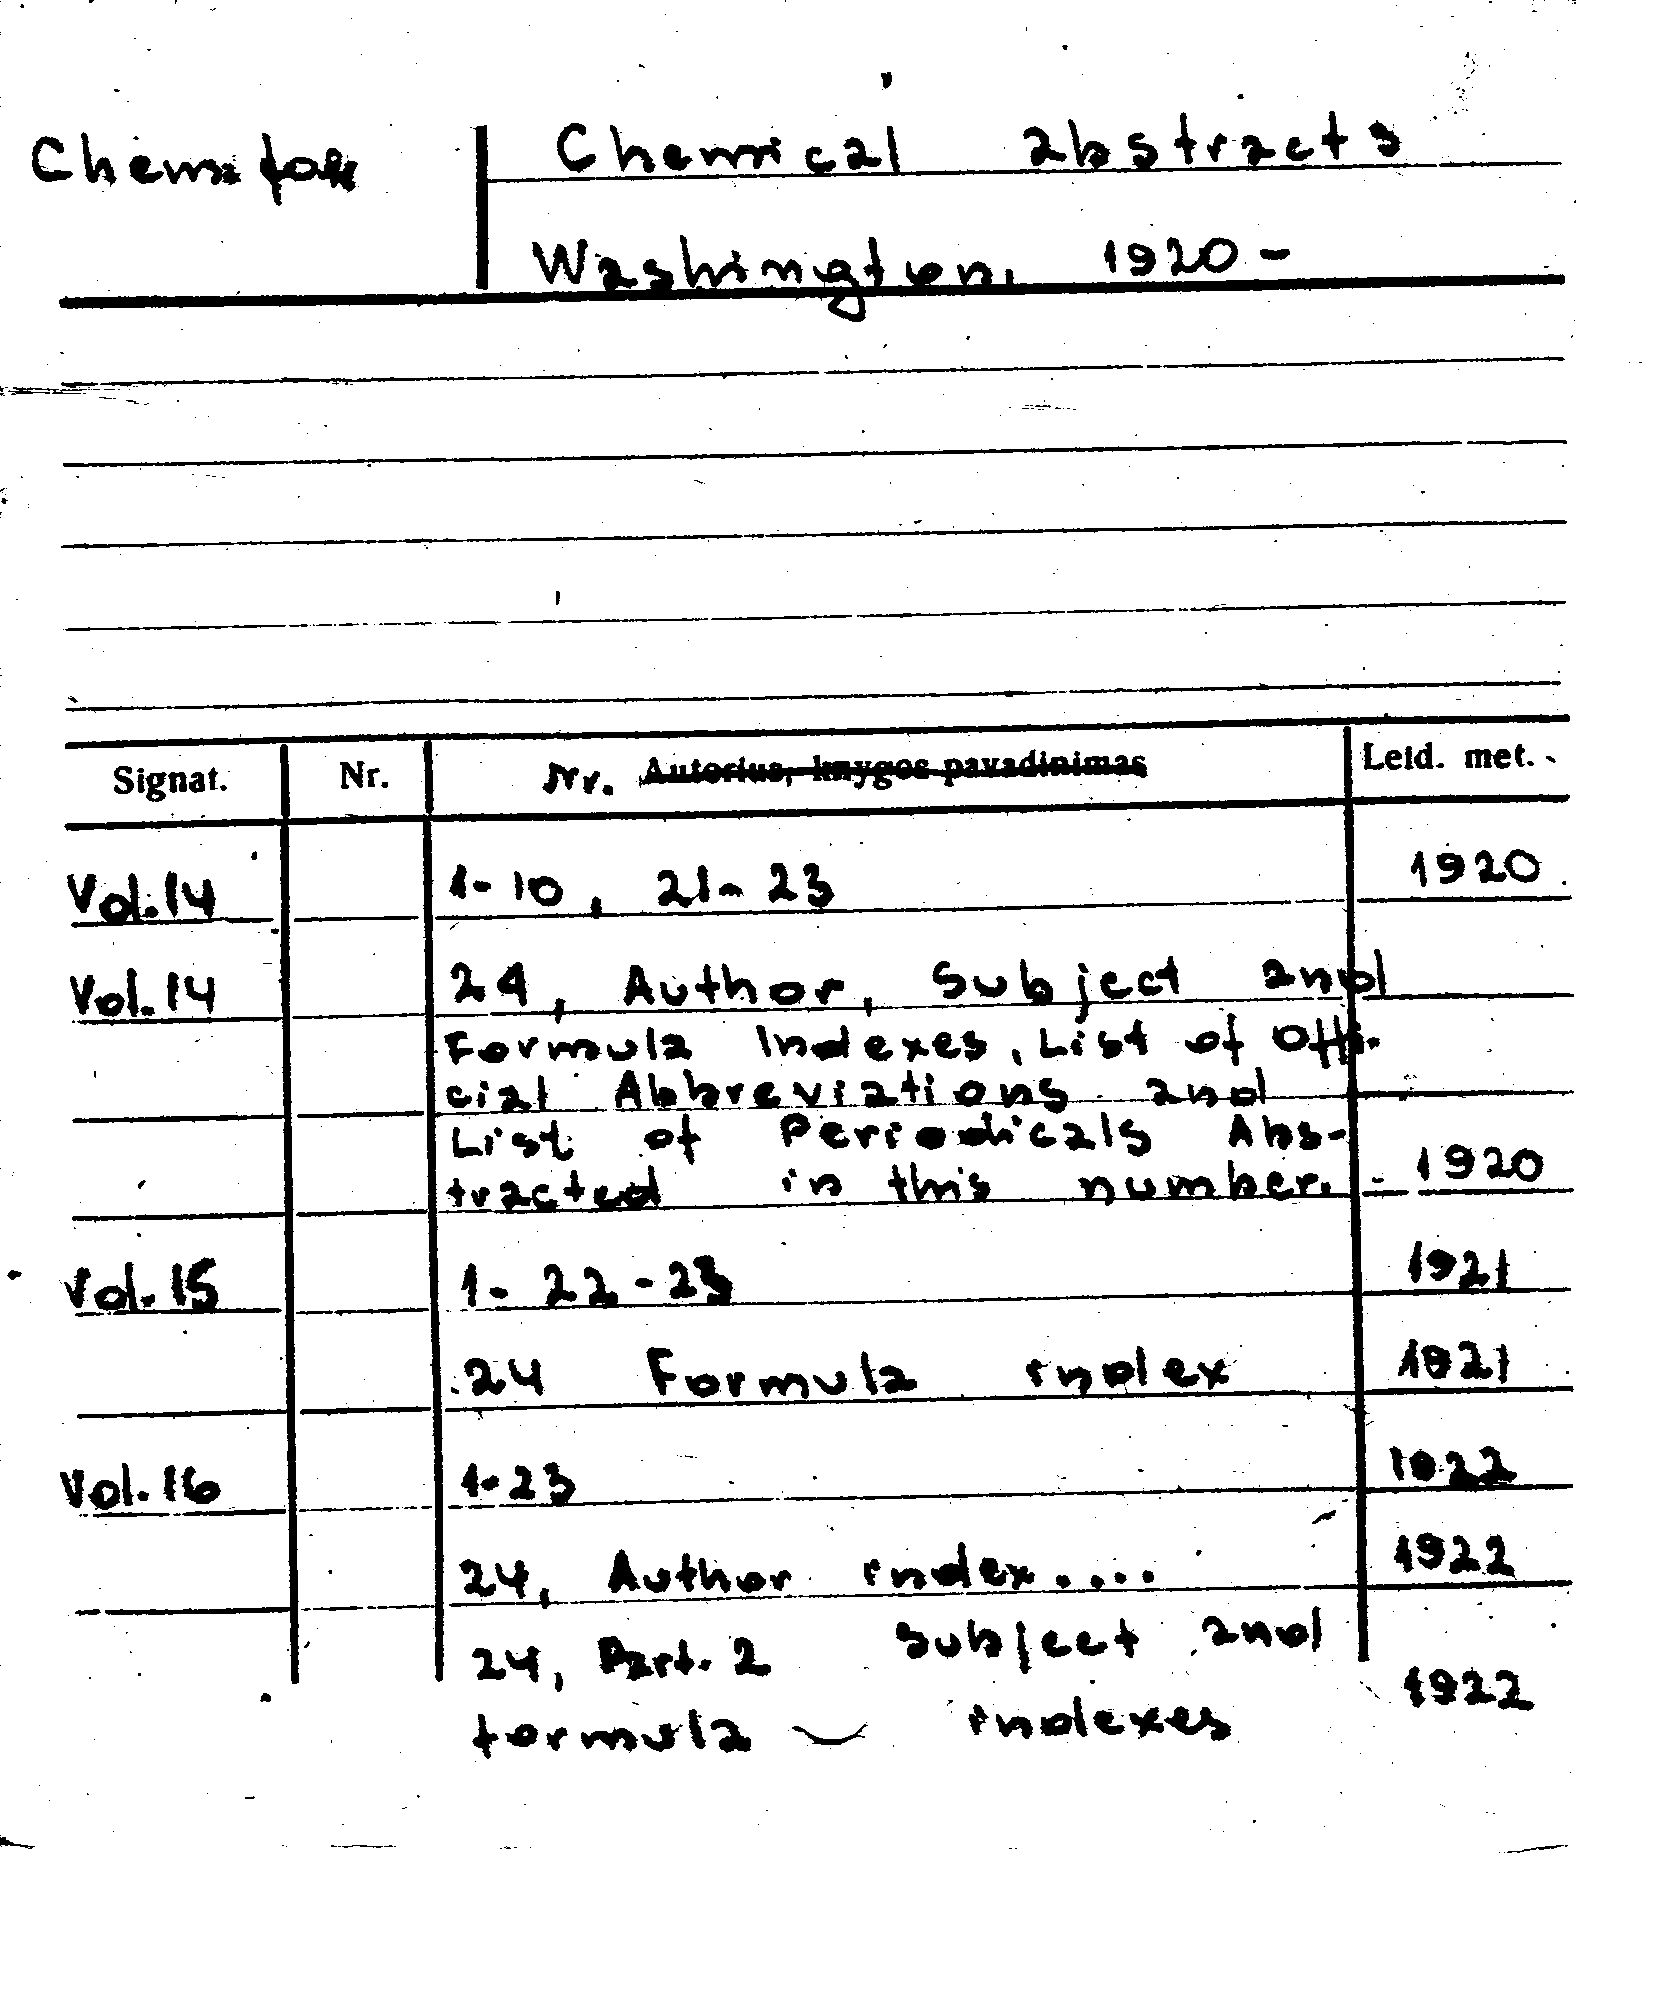 Chemical abstracts
Washington. 1920 -
Signat. Nr. Nr. Autorius, knygos pavadinimas Leid. met.
Vol. 14 1-10, 21-23 1920
Vol. 14 24, Author, Subject and
Formula Indexes, List of Offi-
cial Abbreviations and
List of Periodicals Abs-
tracted in this number. 1920
Vol. 15 1- 22-23 1921
24 Formula index 1921
Vol. 16 1-23 1922
24, Author index.... 1922
24, Part. 2 Subject and
formula indexes 1922